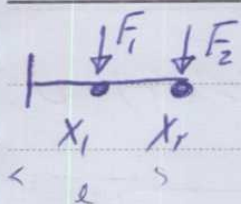 F₁ F₂
X₁ Xᵣ
< l >